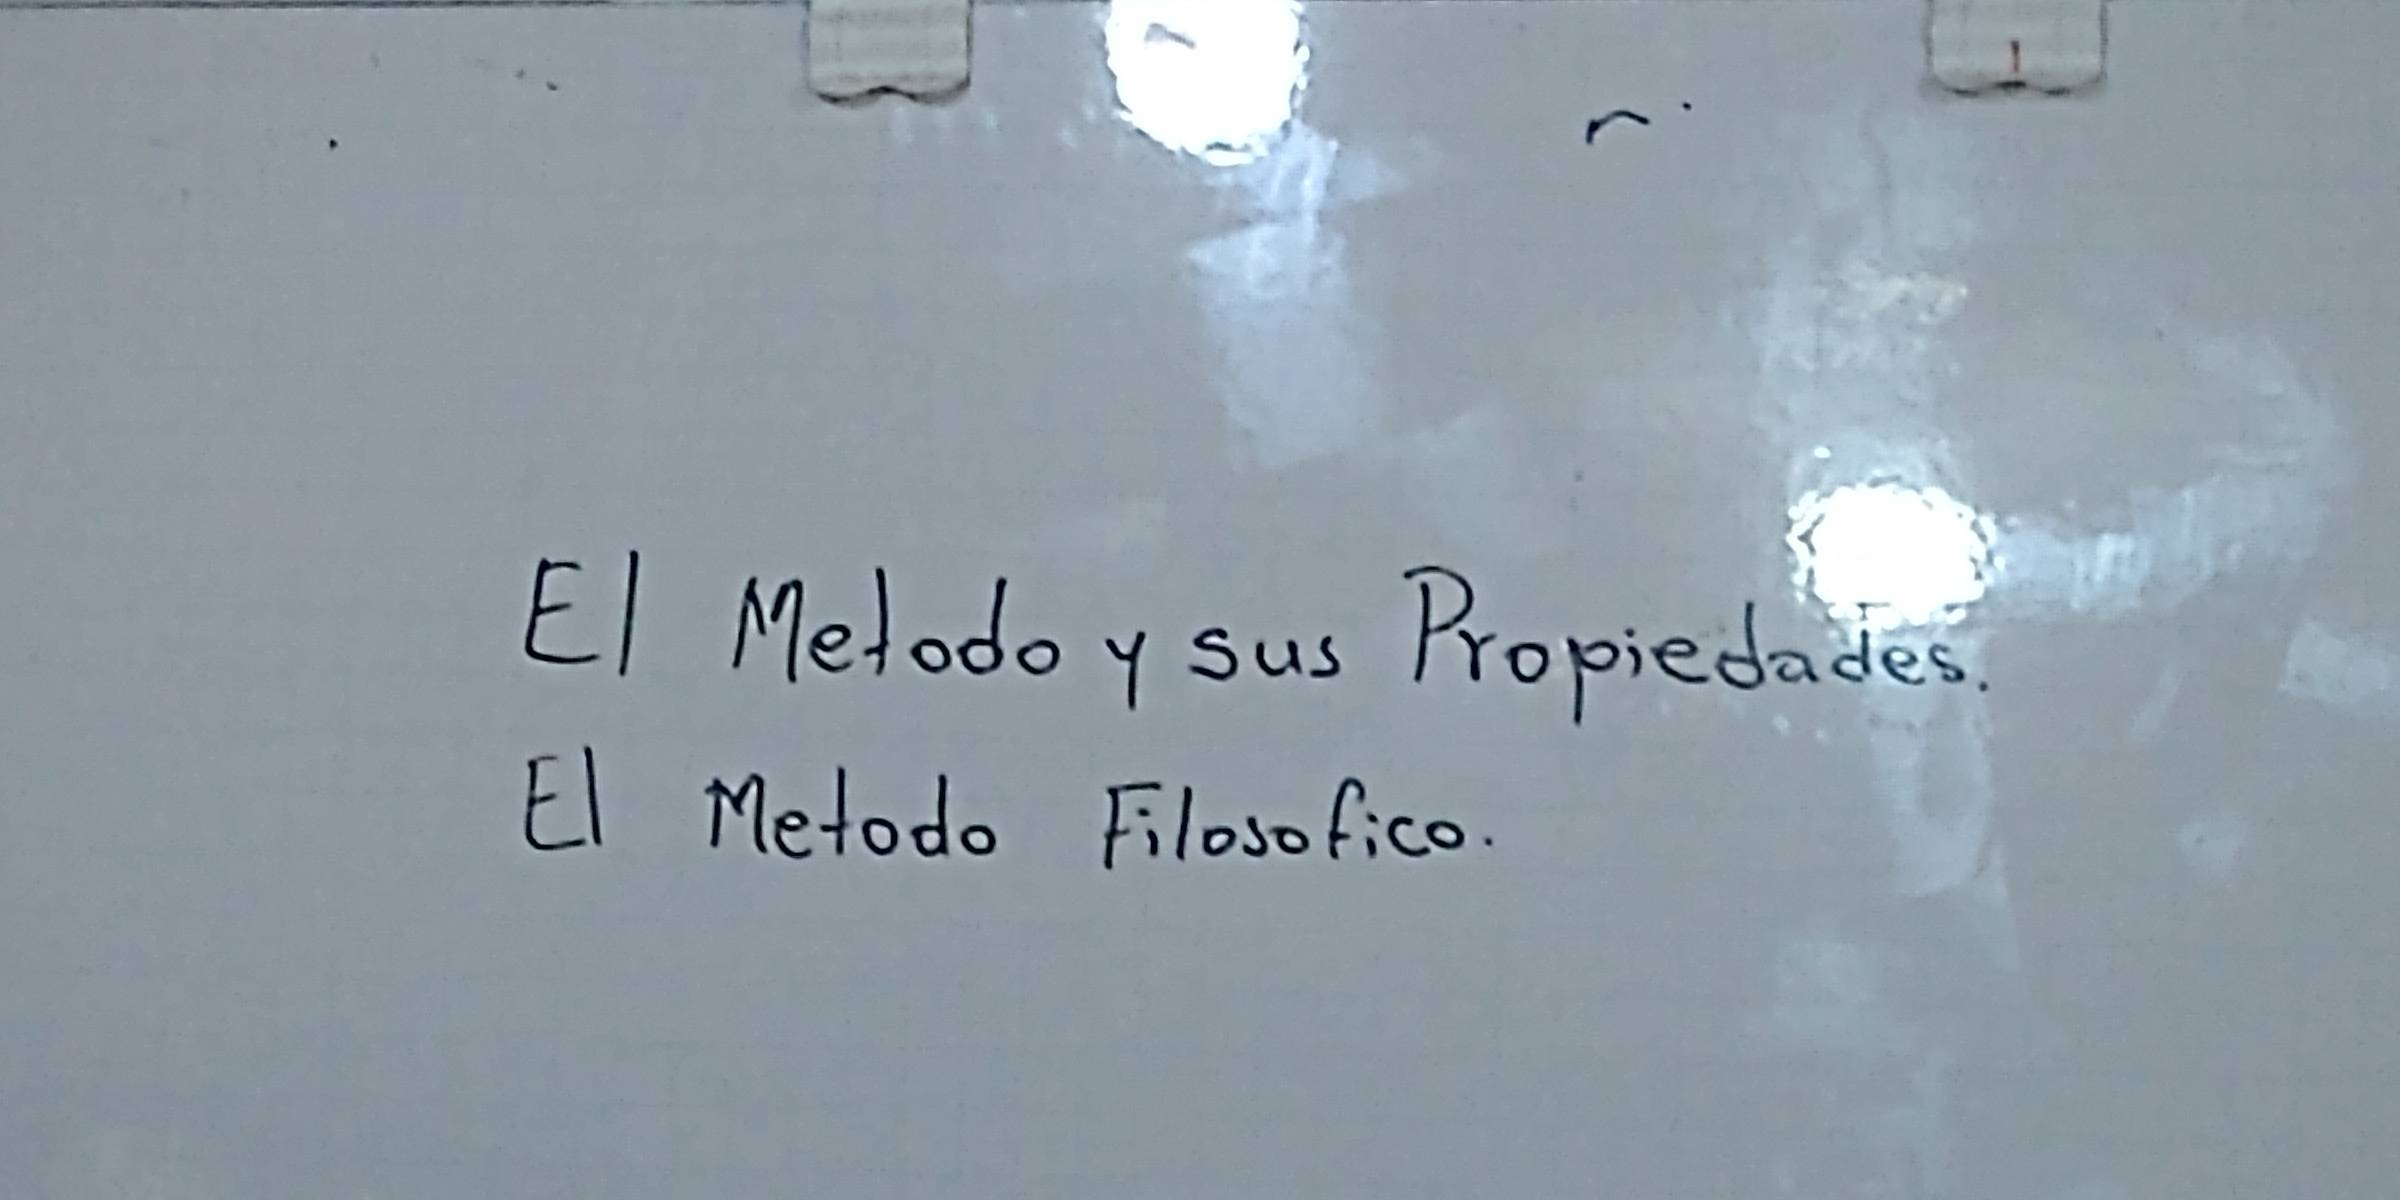 El Metodo y sus Propiedades.
El Metodo Filosofico.